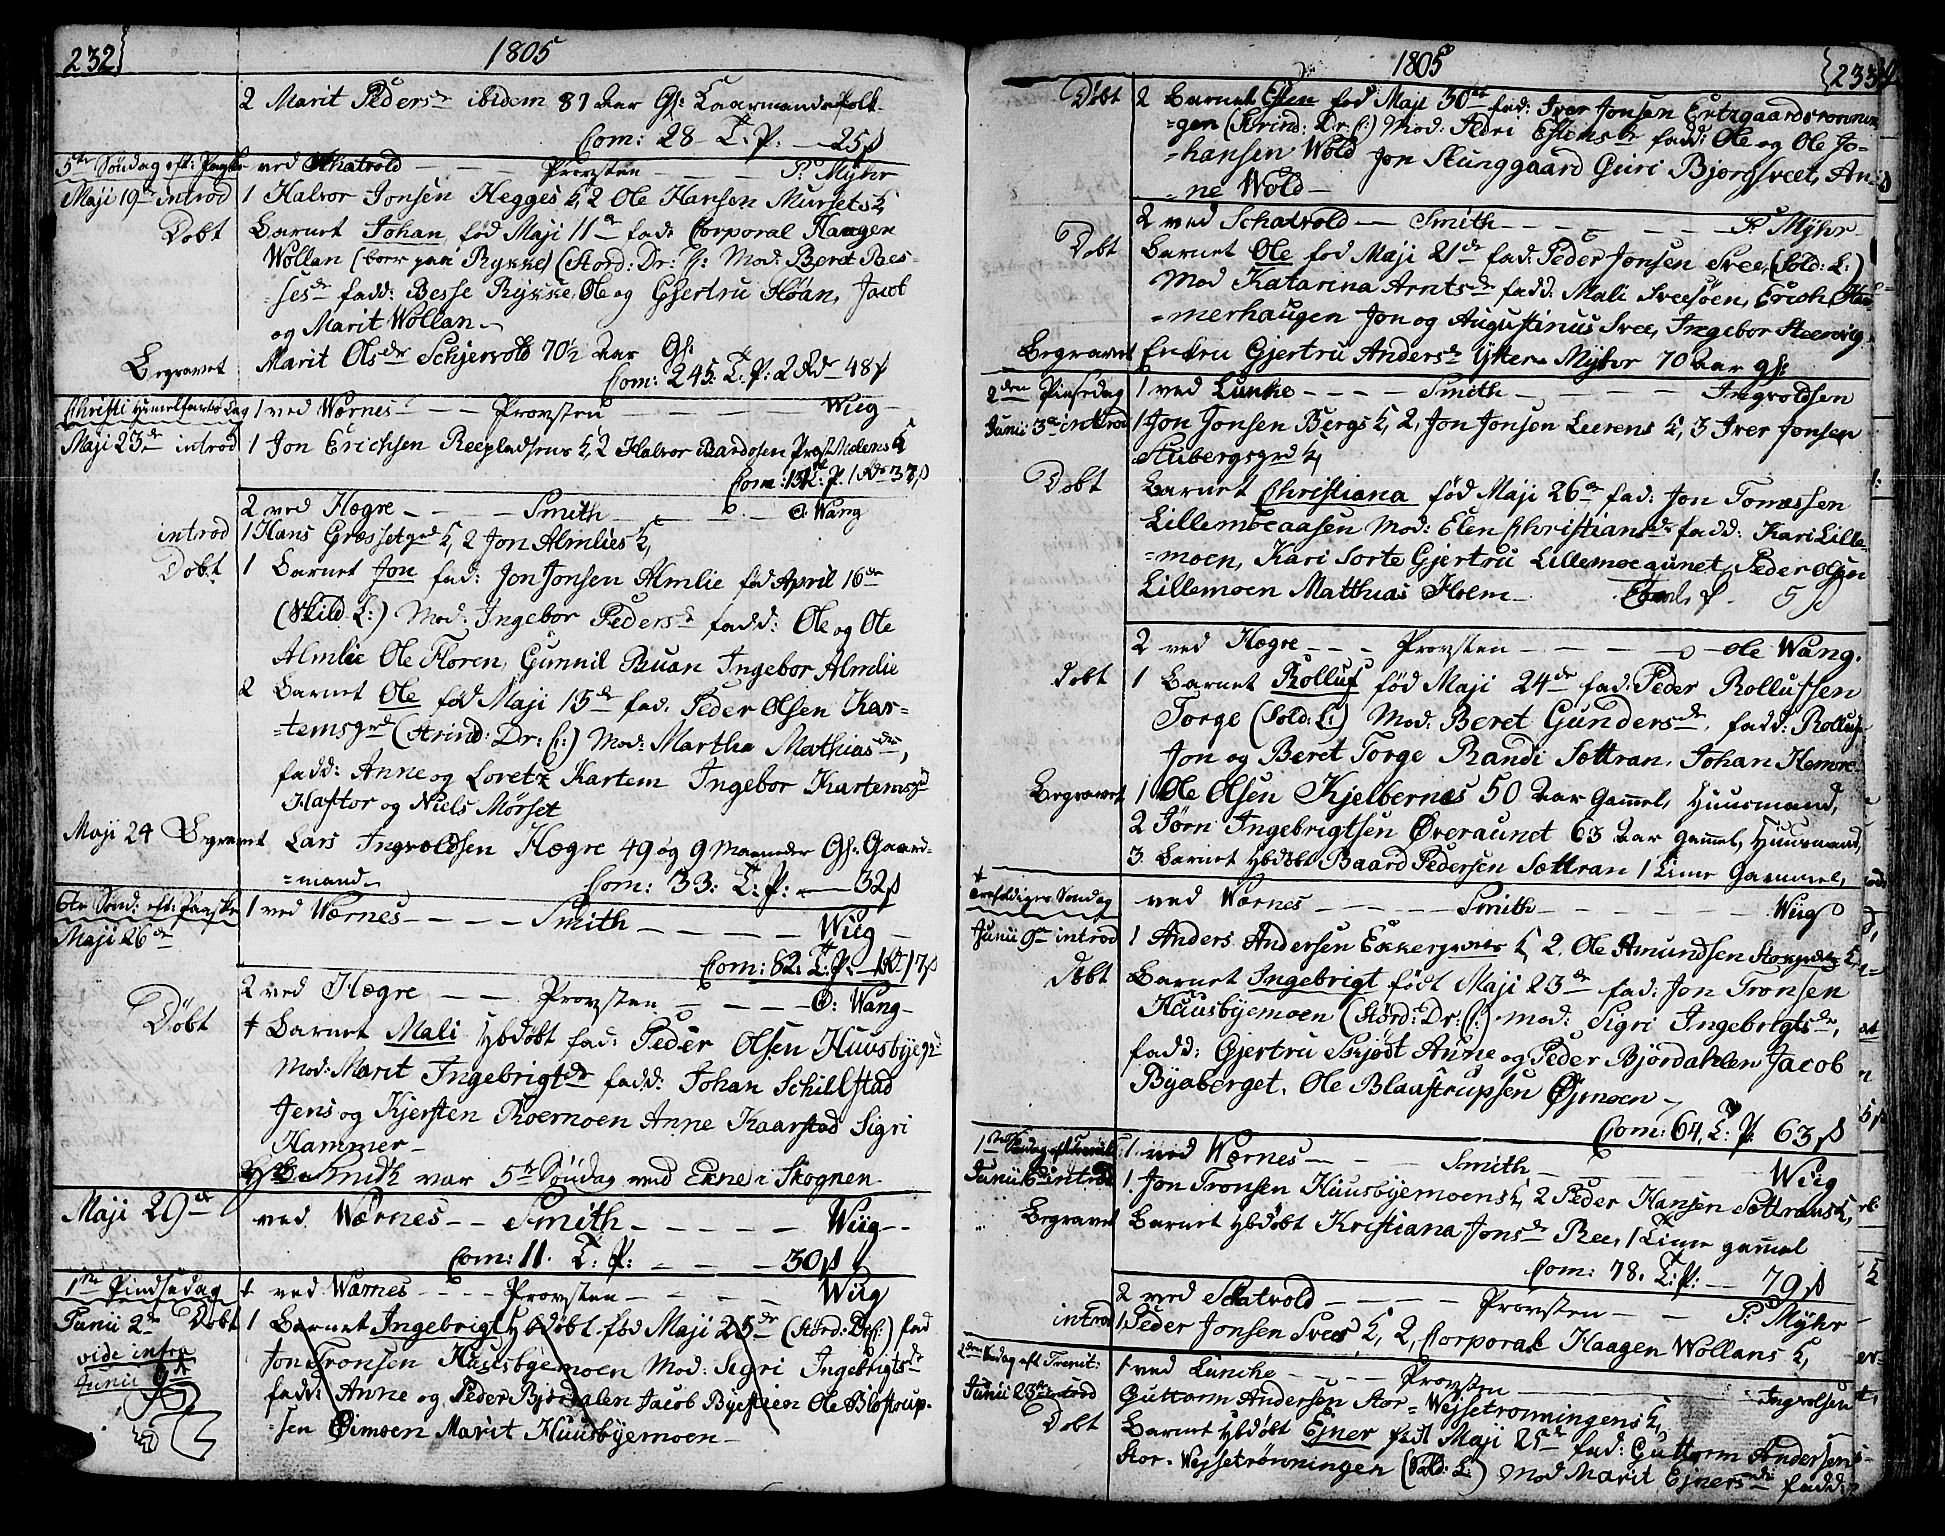 232
1805
2 Marit Peders dr ibidem 87 Aar Gl: Kaarmandsfolk
Com: 28 T. P. — 25 ß
5te Søndag eft: Paaske ved Schatvold — Provsten — P: Myhr
Maji 19 introd 1 Halvor Jonsen Hegges K, 2 Ole Hansen Mursets K,
Døbt Barnet Johan fød Maji 11te fad: Corporal Haagen
Wollan (boer paa Rykke) (Stord: Dr: C: Mod: Beret Paes-
=ses dr fadd: Besse Rykke, Ole og Gjertru Floan, Jacob
og Marit Wollan
Begravet Marit Ols dr Schjervold 70½ Aar Gl:
Com: 245: T: P: 2 Rd 48 ß
Christi Himmelfarts Dag 1 ved Wærnes — Provsten — Wiig
Maji 23de introd 1 Jon Erichsen Reepladsens K, 2 Halvor Bardosen Præstmoens K
Com: T: P. 1 Rd 33 ß
2 ved Hegre — Smith — O: Wang
introd 1 Hans Græsset grd K, 2 Jon Almlies K,
Døbt 1 Barnet Jon fad: Jon Jonsen Almlie fød April 16de
(Skild L:) Mod: Ingebor Peders dr fadd: Ole og Ole
Almlie Ole Floren, Gunnil Buan Ingebor Almlie
2 Barnet Ole fød Maji 15de fad. Peder Olsen Kar=
=temsgrd (Strind: Dr: C:) Mod: Martha Mathias dr,
fadd: Anne og Loretz Kartem Ingebor Kartemsgrd
Hastor og Niels Mørset
Maji 24 Begravet Lars Ingvoldsen Hegre 49 og 9 Maaneder Gl: Gaard-
=mand
Com: 33: T: P: — 32 ß
6te Sønd: eft: Paaske 1 ved Wærnes — Smith — Wiig
Maji 26de
Com: 82. T: P: — 1 Rd 17 ß
2 ved Hegre — Provsten — O: Wang
Døbt 1 Barnet Mali Hbdøbt fad: Peder Olsen Huusbyegrd
Mod: Marit Ingebrigt dr fadd: Johan Schillstad
Jens og Kjersten Roermoen Anne Kaarstad Sigri
Hammer
Smith var 5te Søndag ved Ekne i Skognen
Maji 29de ved Wærnes — Smith — Wiig
Com: 11. T. P: — 30 ß
1ste Pindsedag 1 ved Wærnes — Provsten — Wiig
Junii 2de Døbt 1 Barnet Ingebrigt Hbdøbt fød Maji 23de (Stord: Dr: C:) fad
vide infra Junii 9de Jon Tronsen Huusbyemoen Mod: Sigri Ingebrigts dr
fadd: Anne og Peder Bjordalen Jacob Ole Blastrup-
=sen Øimoen Marit Huusbyemoen
1805
233
Døbt 2 Barnet Esten fød Maji 30te fad: Iver Jonsen Ertzgaardsrønnin
=gen (Strind: Dr: C:) Mod: Estens dr fadd: Ole og Ole Jo=
=hansen Wold Jon Stunggaard Guri Bjorgsveet, An=
=ne Wold
2 ved Schatvold — Smith — P: Myhr
Døbt Barnet Ole fød Maji 21de fad: Peder Jonsen Svee, (Sold: L:)
Mod Katarina Arnts dr fadd: Mali Sveesøen, Erich Ham-
=merhaugen Jon og Augustinus Svee, Ingebor Steenvig
Begravet Enkru Gjertru Anders dr Ytter Myhr 70 Aar gl:
2den Pinsedag 1 ved Lunke — Smith — Ingvoldsen
Junii 3de introd 1 Jon Jonsen Bergs K, 2, Jon Jonsen Leerens K, 3 Iver Jonsen
Stubergsgrd K,
Døbt Barnet Christiana fød Maji 26de fad: Jon Tomassen
Lillemoeaasen Mod: Elen Christians dr fadd: Kari Lille-
=moen, Kari Sorte Gjertru Lillemoegunet, Peder Olsen
Lillemoen Matthias Holm 5 ß
2 ved Hegre — Provsten — Ole Wang.
døbt 1 Barnet Rolluf fød Maji 24de fad: Peder Rollufsen
Torge (Sold: L:) Mod: Beret Gunders dr. fadd: Rolluf
Jon og Beret Torge Randi Sættran, Johan Hemre
Begravet 1 Ole Olsen Kjelbernes 50 Aar Gammel, Huusmand,
2 Jørn Ingebrigtsen Øveraunet 63 Aar Gammel, Huusmand,
3 Barnet Hbdøbt Baard Pedersen Sættran 1 Time Gammel,
Trefoldigheds Søndag ved Wærnes — Smith — Wiig
Junii 9de introd 1 Anders Andersen Ekker K, 2. Ole Amundsen K,
Døbt Barnet Ingebrigt født Maji 23de fad: Jon Tronsen
Huusbyemoen (Stord: Dr: C:) mod: Sigri Ingebrigts dr,
fadd: Gjertru Skjødt Anne og Peder Bjørdahlen Jacob
Byaberget, Ole Blaastrupsen Øjmoen
Com: 64, T: P: 63 ß
1ste Søndag eft Trenit 1. ved Wærnes — Smith — Wiig
Junii 16 introd 1. Jon Tronsen Huusbyemoens K, 2 Peder Hansen Sættrans K,
Begravet Barnet Hbdøbt Kristiana Jons dr Ree, 1 Time gammel
Com: 78. T: P: — 79 ß
2 ved Schatvold — Provsten — P: Myhr
introd 1 Peder Jonsen Svees K, 2, Corporal Haagen Wollans K,
2den Søndag eft Trenit: 1 ved Lunke — Provsten — Ingvolsen
Junii 23de introd Guttorm Andersen Stor=Wejsetrønningens K,
Døbt Barnet Hbdøbt Ejner født Maji 25de fad: Guttorm Andersen
Stor=Wejsetrønningen (Sold: L:) Mod Marit Ejners dr fadd: